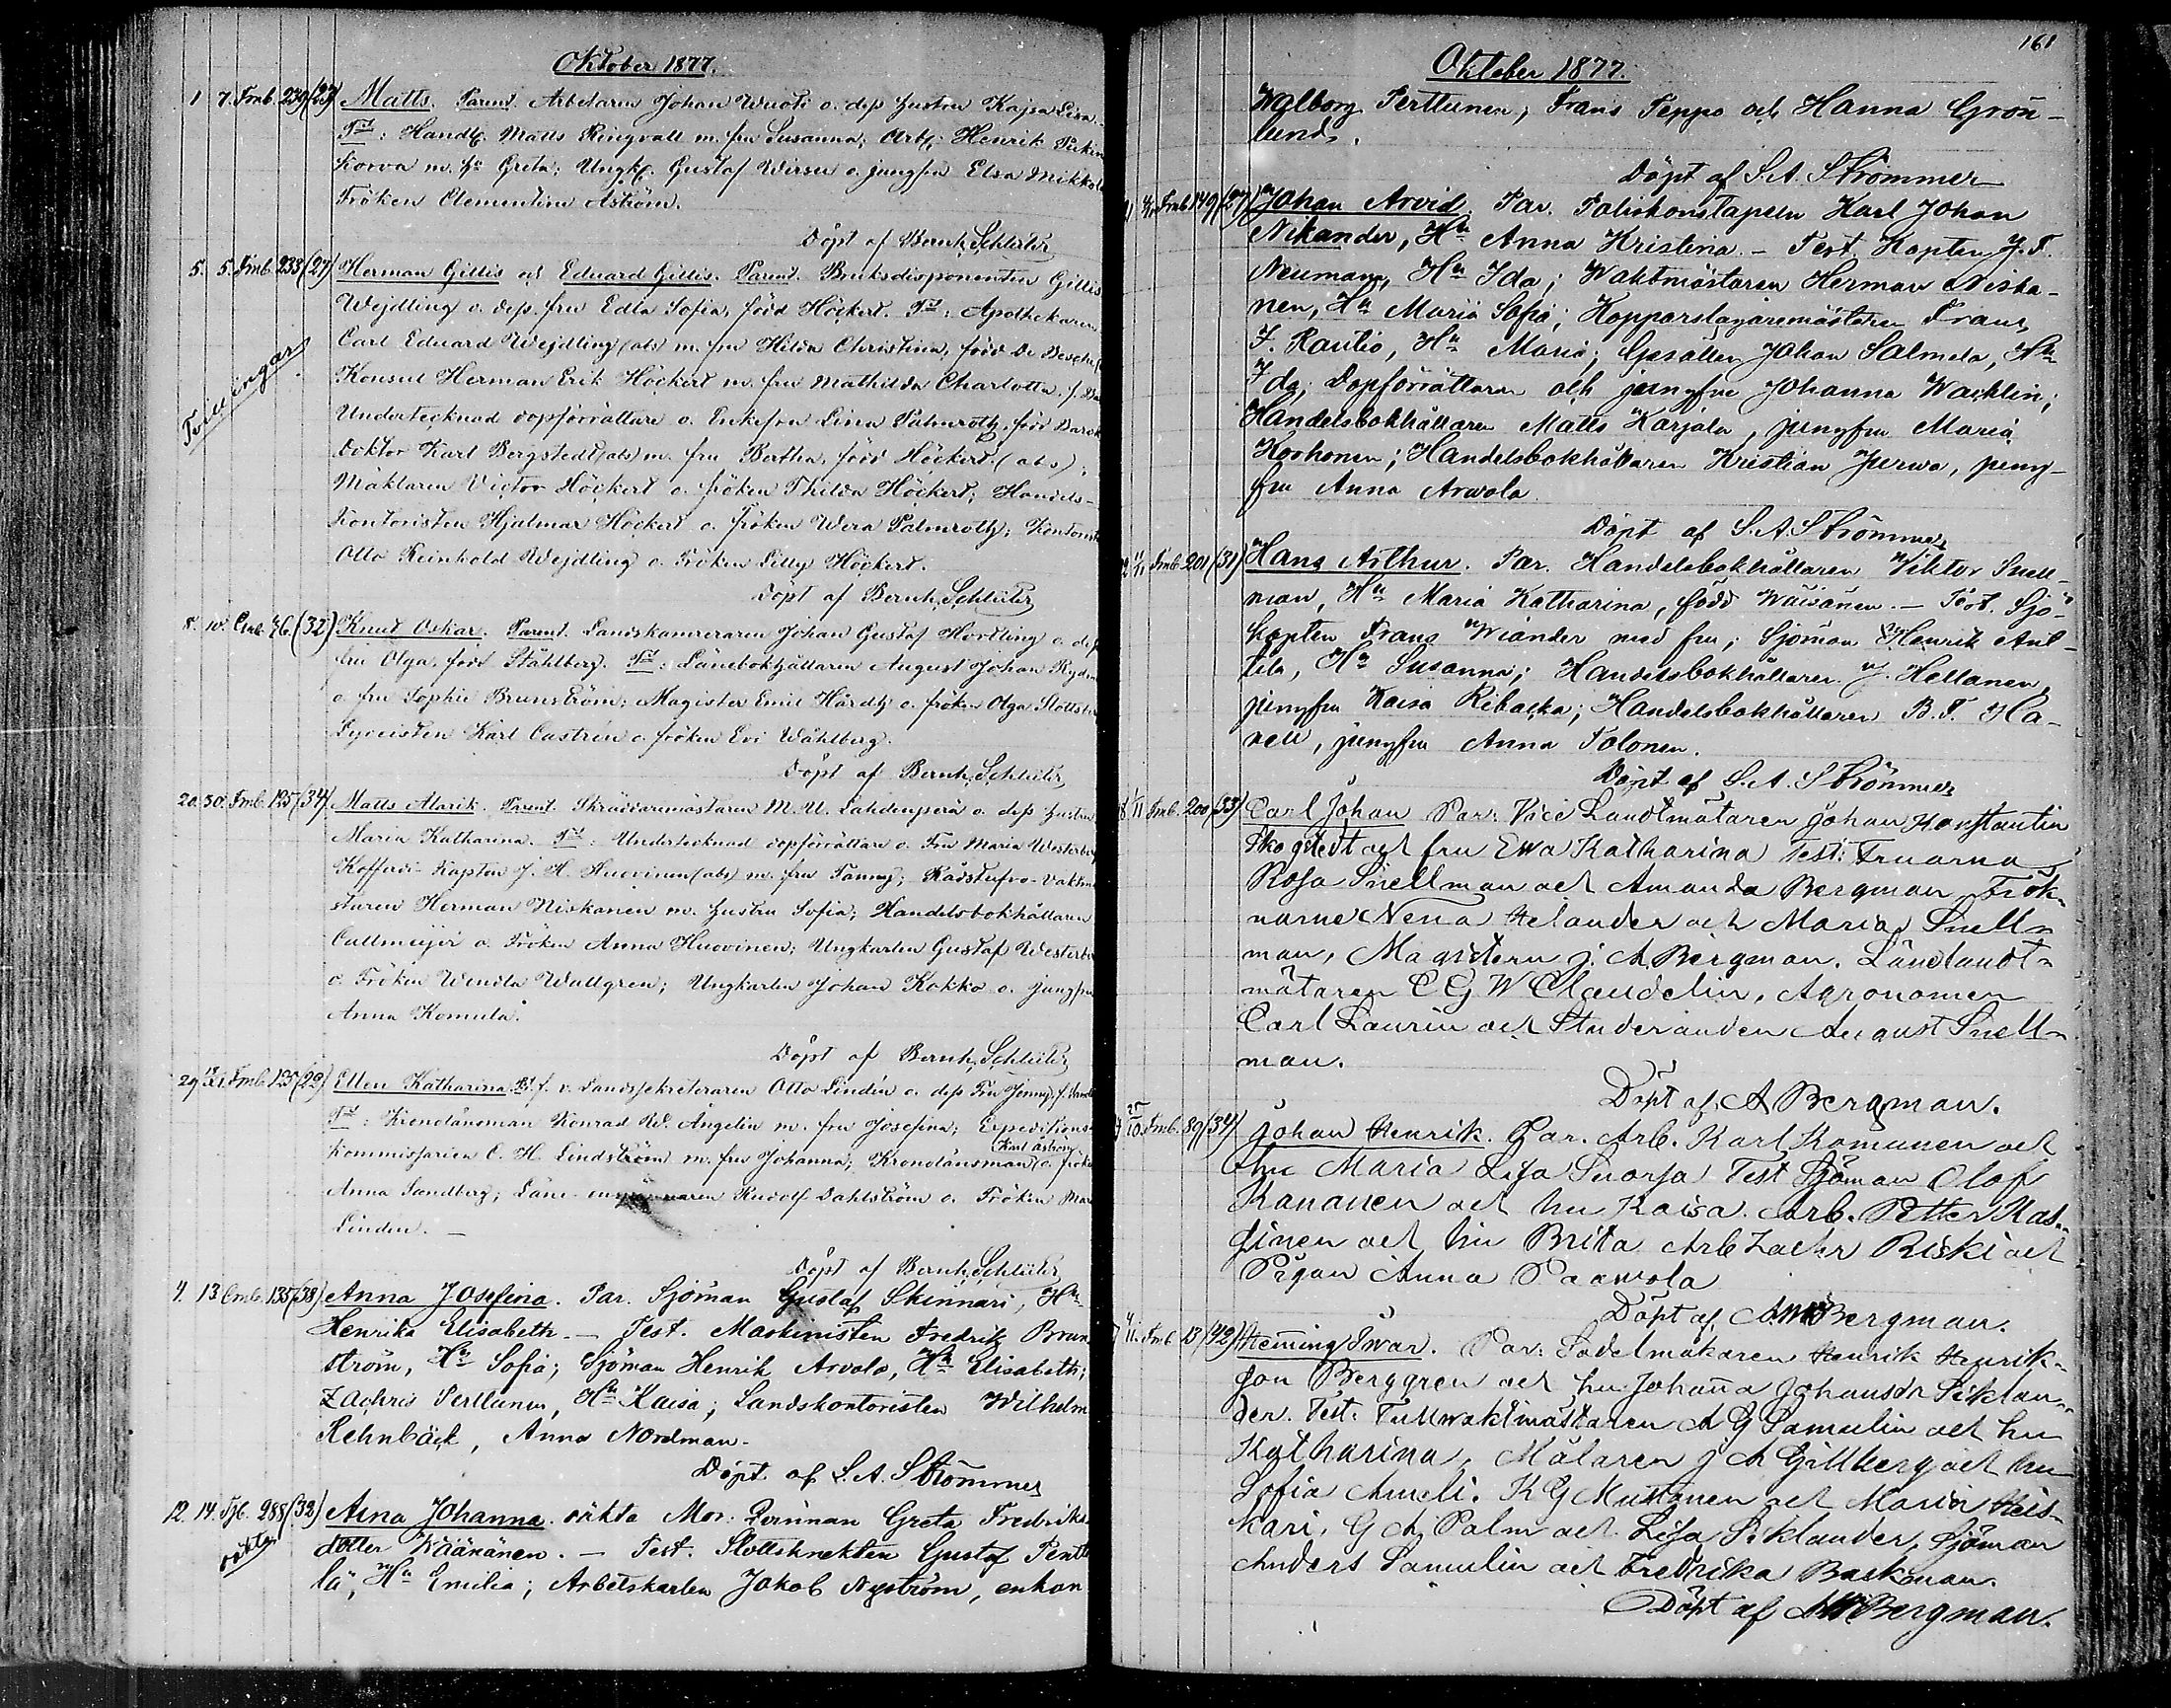 Oktober 1877.
1 7. Fmb. 239 (27) Matts. Parent. Arbetaren Johan Wuoti o. dess hustru Kajsa Lisa.
Tst: Handl. Matts Ringvall m. fru Susanna; Arb. Henrik
Korva m. hu Greta; Ungk. Gustaf Wirsu o. jungfru Elsa Mikkola
Fröken Clementine Åström.
Döpt af Bernh. Schlüter
5. 5. Fmb. 233 (27) Herman Gillis och Eduard Gillis. Parent. Bruksdisponenten Gillis
Wejdling o. dess fru Edla Sofia, född Höckert. Tst: Apothekaren
Tvillingar
Carl Eduard Wejdling (abs) m. fru Hilda Christina, född De
Konsul Herman Erik Höckert m. fru Mathilda Charlotta, f.
Undertecknad dopförrättare o. Enkefru Lina Palmroth, född
Doktor Karl Bergstedt (abs) m. fru Bertha, född Höckert (abs);
Mäklaren Victor Höckert o. fröken Thilda Höckert; Handels-
Kontoristen Hjalmar Höckert o. fröken Wera Palmroth; Kontorist
Otto Reinhold Wejdling o. Fröken Lilly Höckert.
Döpt af Bernh. Schlüter
8. 10. Cmb. 76. (32) Knut Oskar. Parent. Landskamreraren Johan Gustaf Hordling o. dess
fru Olga, född Ståhlberg. Tst: Länebokhållaren August Johan
o. fru Sophie Brunström; Magister Emil Hårdh o. fröken Olga
Lyceisten Karl Castrén o. fröken Evi Wåhlberg.
Döpt af Bernh. Schlüter
20. 30. Fmb. 125 (34) Matts Alarik. Parent. Skräddaremästaren M. U. Lahdenperä o. dess hustru
Maria Katharina. Tst: Undertecknad dopförrättare o. Fru Maria
Kofferdi-Kapten J. H. Huovinen (abs) m. fru Fanny; Rådstufvo-Vaktmä
staren Herman Niskanen m. hustru Sofia; Handelsbokhållaren
Callmeijer o. Fröken Anna Huovinen; Ungkarlen Gustaf
o. Fröken Wendla Wallgren; Ungkarlen Johan Kokko o. jungfru
Anna Komula.
Döpt af Bernh. Schlüter
29 Fmb. 125 (29) Ellen Katharina. f. v. Landssekreteraren Otto Lindén o. dess Fru Jenny, f.
Tst: Kronolänsman Konrad Wd. Ångelin m. fru Josefina; Expeditions-
Karl Åström
kommissarien C. H. Lindström m. fru Johanna; Kronolänsman o. fröken
Anna Sandberg; Läne- Rudolf Dahlström o. Fröken
Linden. —
Döpt af Bernh. Schlüter
4. 13. Cmb. 135 (38) Anna Josefina. Par. Sjöman Gustaf Skinnari, Hu
Henrika Elisabeth. — Test. Maskinisten Fredrik Brun
ström, Hu Sofia; Sjöman Henrik Arvola, Hu Elisabeth;
Zachris Perttunen, Hu Kaisa; Landskontoristen Wilhelm
Rehnbäck, Anna Nordman.
Döpt af S. A. Strömmer
12. 14. 288 (32) Aina Johanna. oäkta Mor: Greta Fredriks
oäkta
dotter Wäänänen. — Test. Slottsknekten Gustaf
lä, Hu Emilia; Arbetskarlen Jakob Nyström, enkan
161
Oktober 1877.
Walborg Perttunen, Frans Teppo och Hanna Grön-
lund.
Döpt af S. A. Strömmer
Fmb. 149 (27) Johan Arvid. Par. Poliskonstapeln Karl Johan
Nikander, Hu Anna Kristina. — Test. Kapten J. F.
Neumann, Hu Ida; Waktmästaren Herman Niska-
nen, Hu Maria Sofia; Kopparslagaremästaren Frans
F. Rautio, Hu Maria; Gesällen Johan Salmela, Hu
Ida; Dopförrättaren och jungfru Johanna Wacklin;
Handelsbokhållaren Matts Karjala, jungfru Maria
Korhonen; Handelsbokhållaren Kristian Jurwa, jung-
fru Anna Arwola
Döpt af S. A. Strömmer
Fmb. 201 (31) Hans Arthur. Par. Handelsbokhållaren Viktor Snell-
man, Hu Maria Katharina, född Wäisänen. — Test. Sjö-
kapten Frans Wiander med fru; Sjöman Henrik Ant-
tila, Hu Susanna; Handelsbokhållaren J. Hellanen,
jungfru Kaisa Ribacka; Handelsbokhållaren B. F. Ha-
vell, jungfru Anna Tolonen.
Döpt af S. A. Strömmer
Fmb. 200 (33) Carl Johan Par: Vice Landtmätaren Johan Konstantin
Skogstedt och fru Ewa Katharina Test: Fruarna
Rosa Snellman och Amanda Bergman, Frök-
narne Nena Helander och Maria Snell-
man, Magistern J. A. Bergman. Länelandt-
mätaren C G W Claudelin, Agronomen
Carl Laurin och Studeranden August Snell-
man.
Döpt af A Bergman.
Fmb. 89 (34) Johan Henrik. Par. Arb. Karl Komunen och
hu Maria Lisa Snorsa Test Sjöman Olof
Kananen och hu Kaisa. Arb. Petter Kas-
sinen och hu Brita Arb Zachr Riski och
Pigan Anna Paawola
Döpt af A Bergman.
Fmb. 13 (42) Heming Iwar. Par: Sadelmakaren Henrik Henrik-
son Berggren och hu Johanna Johansdr Siklan-
der. Test: Tullwaktmästaren A G Samulin och hu
Katharina, Målaren J A Gillberg och hu
Sofia Ameli. K G Mustonen och Maria Heis-
kari, G A Palm och Lisa Siklander, Sjöman
Anders Samulin och Fredrika Backman.
Döpt af A Bergman.